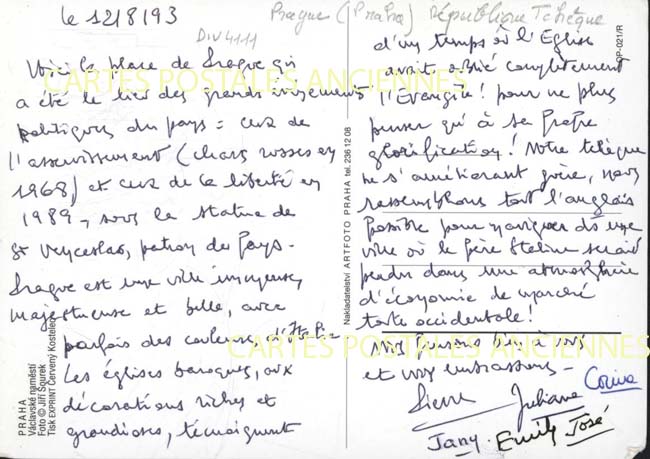 le 12/8/93
DIV4111
Prague (Praha) République Tchèque
Voici la place de Prague qui
a été le lieu des grands
politiques du pays = ceux de
l'asservissement (chars russes en
1968) et ceux de la liberté en
1989 - sous la statue de
St Venceslas, patron du Pays -
Prague est une ville
majestueuse et belle, avec
parfois des couleurs d'Italie
Les églises baroques, aux
décorations riches et
grandioses, témoignent
d'un temps où l'Église
avait oublié complètement
l'Évangile! pour ne plus
penser qu'à sa propre
glorification! Notre tchèque
ne s'améliorant guère, nous
tout l'anglais
possible pour naviguer ds une
ville où le père Staline serait
perdu dans une atmosphère
d'économie de marché
toute occidentale!
Nous pensons bien à vous
et vous embrassons -
Pierre Juliane Corina
Jany. Emily José
CARTES POSTALES ANCIENNES
CARTES POSTALES ANCIENNES
PRAHA
Václavské náměstí
Foto © Jiří Šourek
Tisk EXPRINT Červený Kostelec
Nakladatelství ARTFOTO PRAHA tel. 236 12 08
OP-021/R